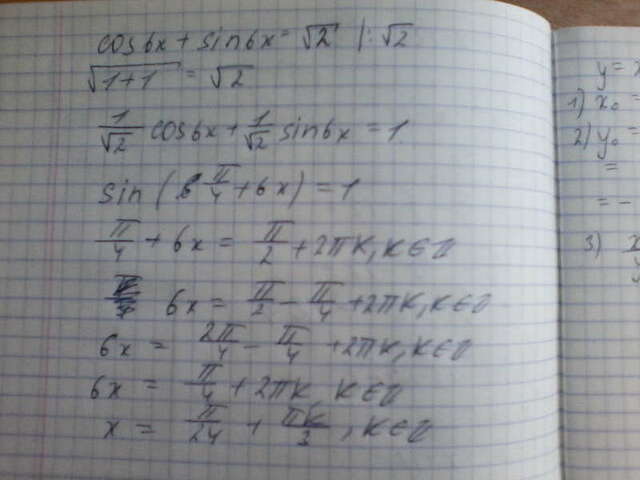 cos6x + sin6x = √2 |:√2
√(1+1) = √2
1/√2 cos6x + 1/√2 sin6x = 1
sin (π/4 + 6x) = 1
π/4 + 6x = π/2 + 2πk, k∈Z
6x = π/2 - π/4 + 2πk, k∈Z
6x = 2π/4 - π/4 + 2πk, k∈Z
6x = π/4 + 2πk, k∈Z
x = π/24 + πk/3, k∈Z
y =
1) x₀ =
2) y₀ =
=
= -
3)